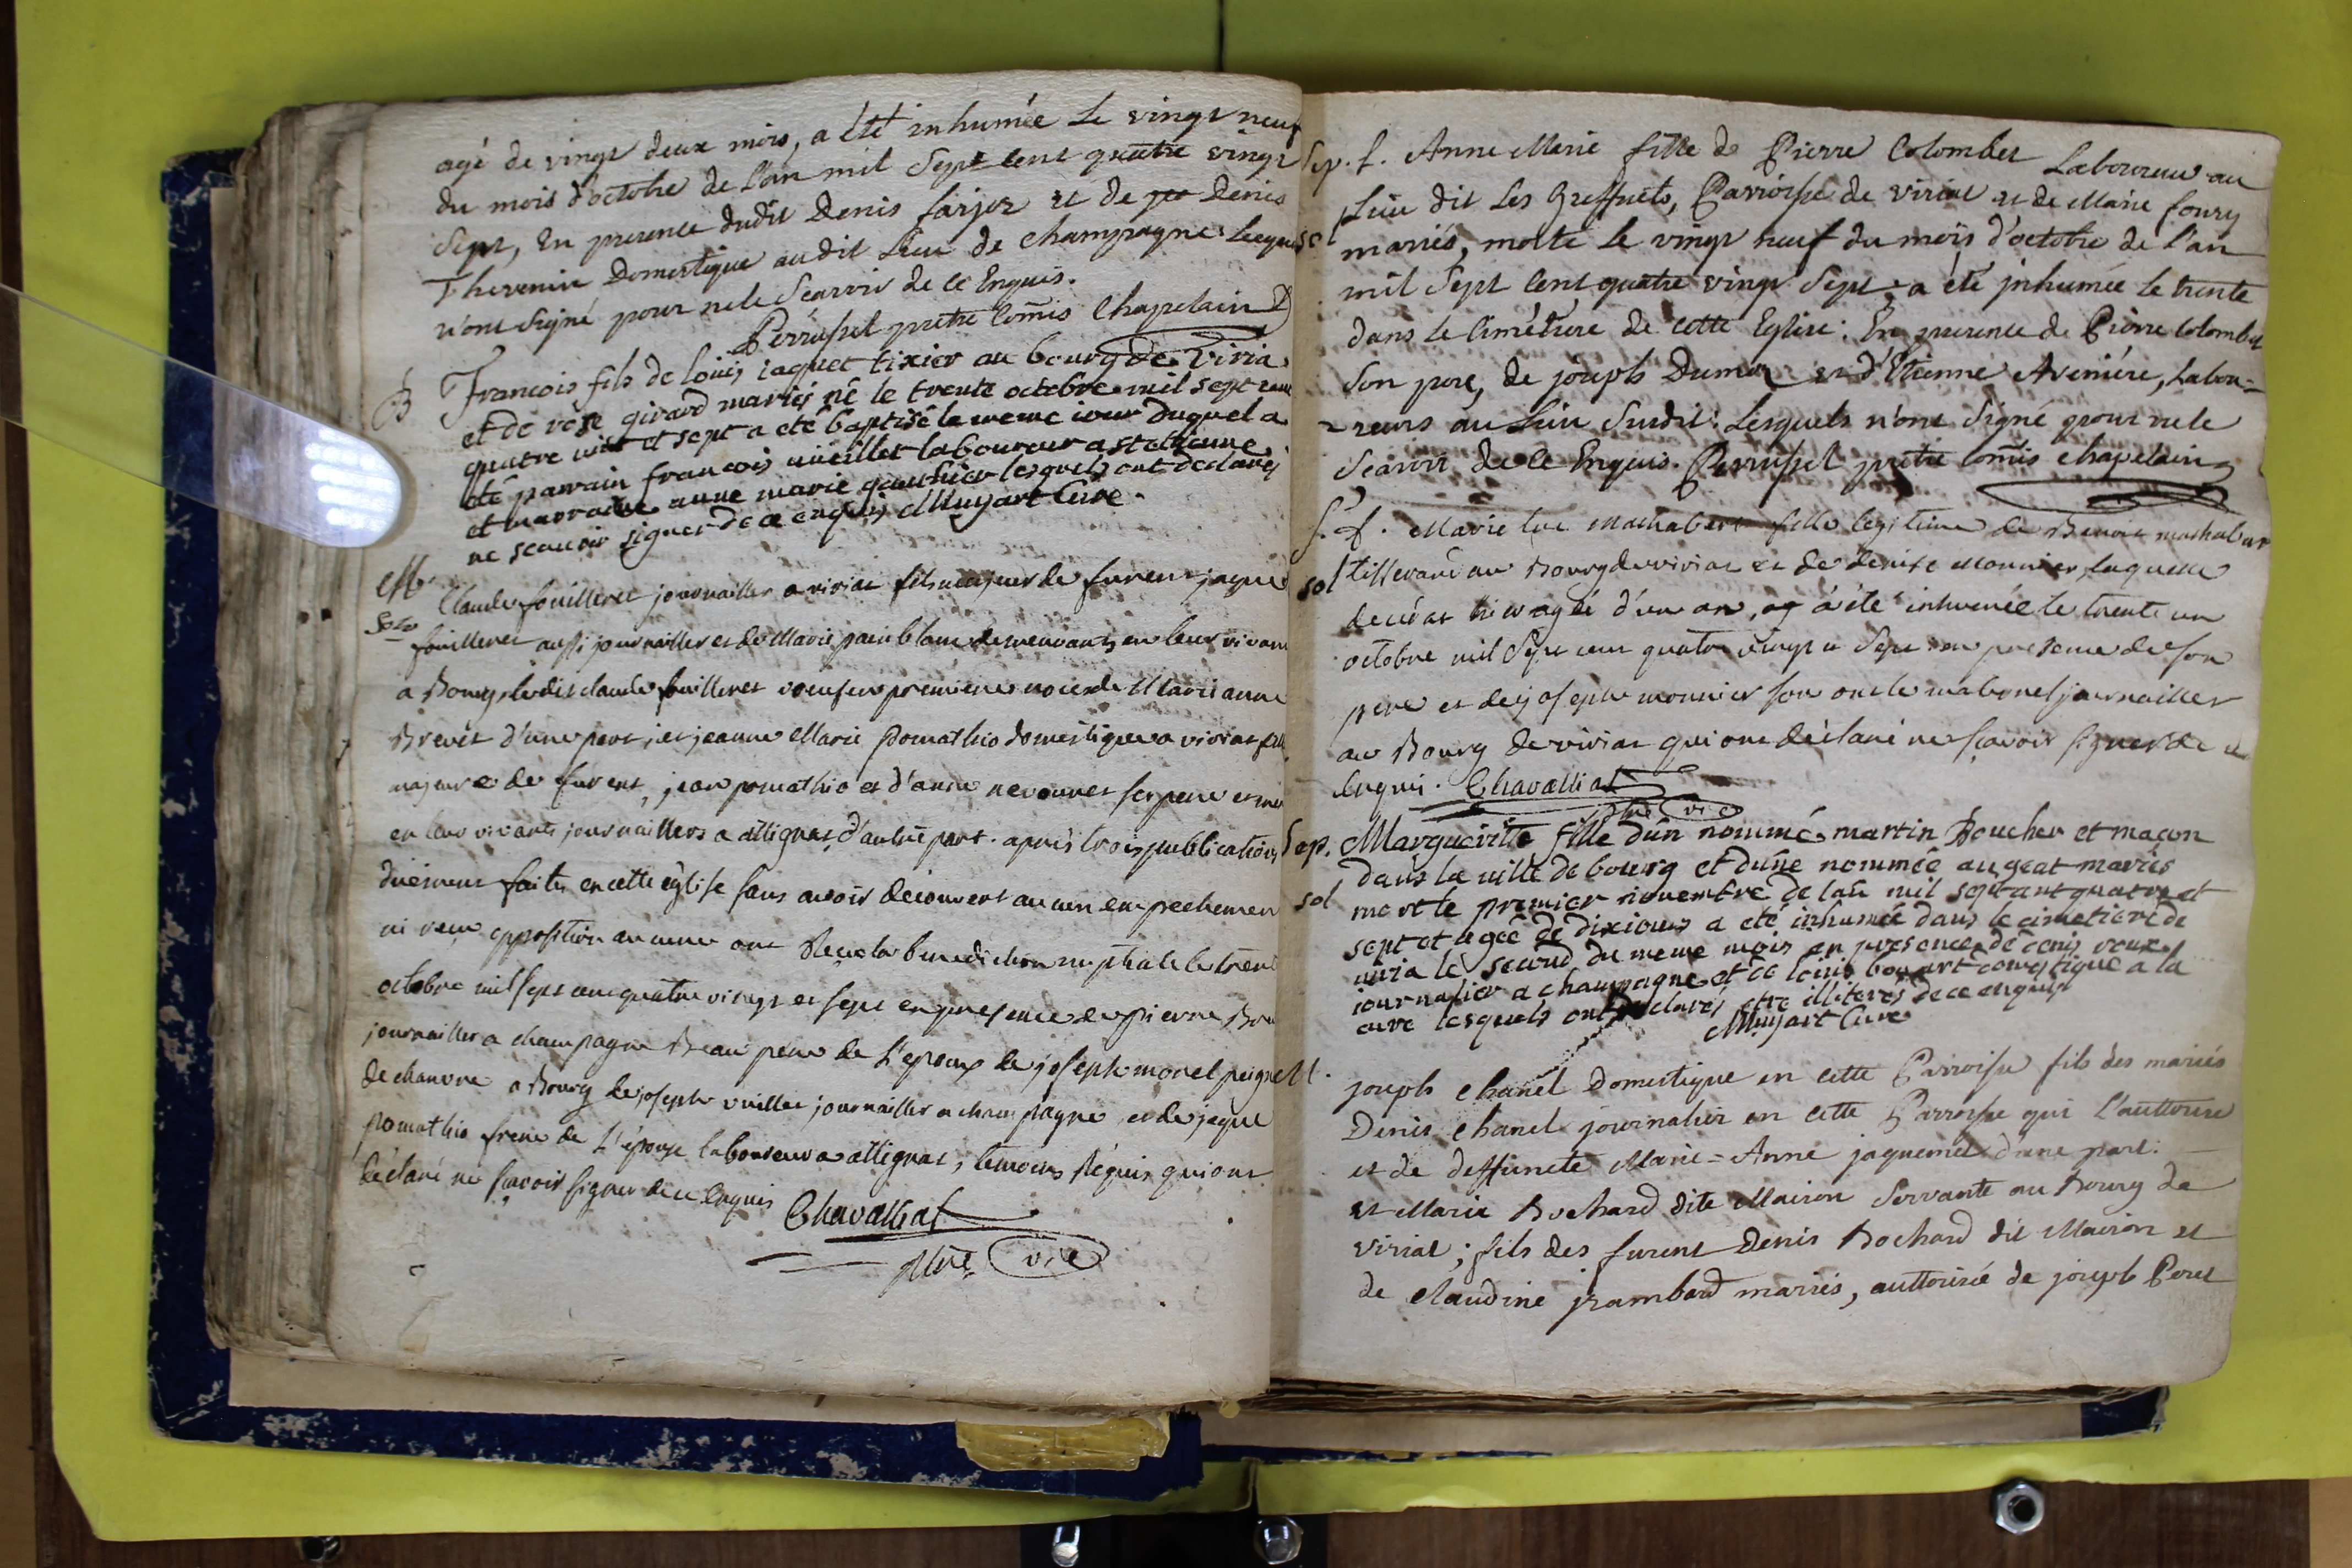 agé de vingt deux mois, a été inhumée le vingt neuf
du mois d'octobre de l'an mil Sept cent quatre vingt
Sept, En presence dudit Denis farjos et de Denis
Thevenin Domestique audit Lieu de champagne Lesquels
n'ont Signé pour ne le Seavoir de ce Enquis.
Perrusset pretre Comis Chapelain
B Francois fils de louis jaquet tixier au bourg de viria
et de rose girard mariés né le trente octobre mil sept cent
quatre vint et sept a eté baptisé le meme iour duquel a
été parrain francois vueillet laboureur a st etienne
et marraine anne marie gauthier lesquels ont declarés
ne scavoir signer de ce enquis Muyart Cure.
M. Claude fouilleret journailler a viriat fils majeur de furent jaque
Solv fouilleret aussi journailler et de Marie pain blanc demeurants en leur vivant
a Bourg, ledit claude fouilleret veuf en premieres noces de Marianne
Brevet d'une part; et jeanne Marie pomathio domestique a viriat fille
majeure de furent, jean pomathio et d'anne ses pere et mere
en leur vivants journaillers a attignat, d'autre part. apres trois publications
duëment faites en cette église sans avoir decouvert aucun empechement
ni reçu opposition aucune ont Reçu la benediction nuptiale le trente
octobre mil sept cent quatre vingt et sept en presence de pierre
journailler a champagne Beau pere de L'epoux de joseph morel peigneur
de chanvre a Bourg de joseph vuillet journailler a champagne et de jaque
pomathio frere de L'épouse laboureur a attignat, temoins Réquis qui ont
déclaré ne sçavoir signer de ce Enquis
Chavalliat
ptre vic
Sep. f. Anne Marie fille de Pierre Colombet Laboureur au
Lieu dit Les Greffiets, Parroisse de viriat et de Marie foury
mariés, morte le vingt neuf du mois d'octobre de l'an
mil Sept Cent quatre vingt Sept; a été jnhumée le trente
dans le Cimétiere de cette Eglise: En presence de Pierre Colombet
Son pere, de joseph Dumas et d'Etienne Aveniére, Labou=
=reurs au Lieu Susdit: Lesquels n'ont Signé pour ne le
Seavoir de ce Enquis. Perrusset prêtre comis chapelain
S. f. Marie luc machabert fille legitime de Benoit machabert
sol tisserant au Bourg de viriat et de denise monnier, laquelle
deceda hier agée d'un an, a été inhumée le trente un
octobre mil Sept cent quatre vingt et Sept en presence de son
pere et de joseph monnier son oncle maternel journailler
au Bourg de viriat qui ont déclaré ne sçavoir signer de ce
Enquis. Chavalliat
ptre vic
Sep. Marguerite fille d'un nommé martin Boucher et maçon
dans la ville de bourg et d'une nommée augeat mariés
sol morte le premier novembre de lan mil septant quatre et
sept et agée de dix iours a eté inhumée dans le cimetiere de
viria le second du meme mois en presence de denis roux
iournalier a champagne et de louis bouvart domestique a la
cure lesquels ont declarés etre illiterés de ce enquis
Muyart Cure
M. joseph chanel Domestique en cette Parroisse fils des mariés
Denis chanel journalier en cette Parroisse qui l'auttorise
et de deffuncte Marie=Anne jaquemet d'une part.
et Marie Bochard dite Mairon Servante au Bourg de
viriat; fils des furent Denis Bochard dit Mairon et
de claudine jrambard mariés, auttorisée de joseph Peret